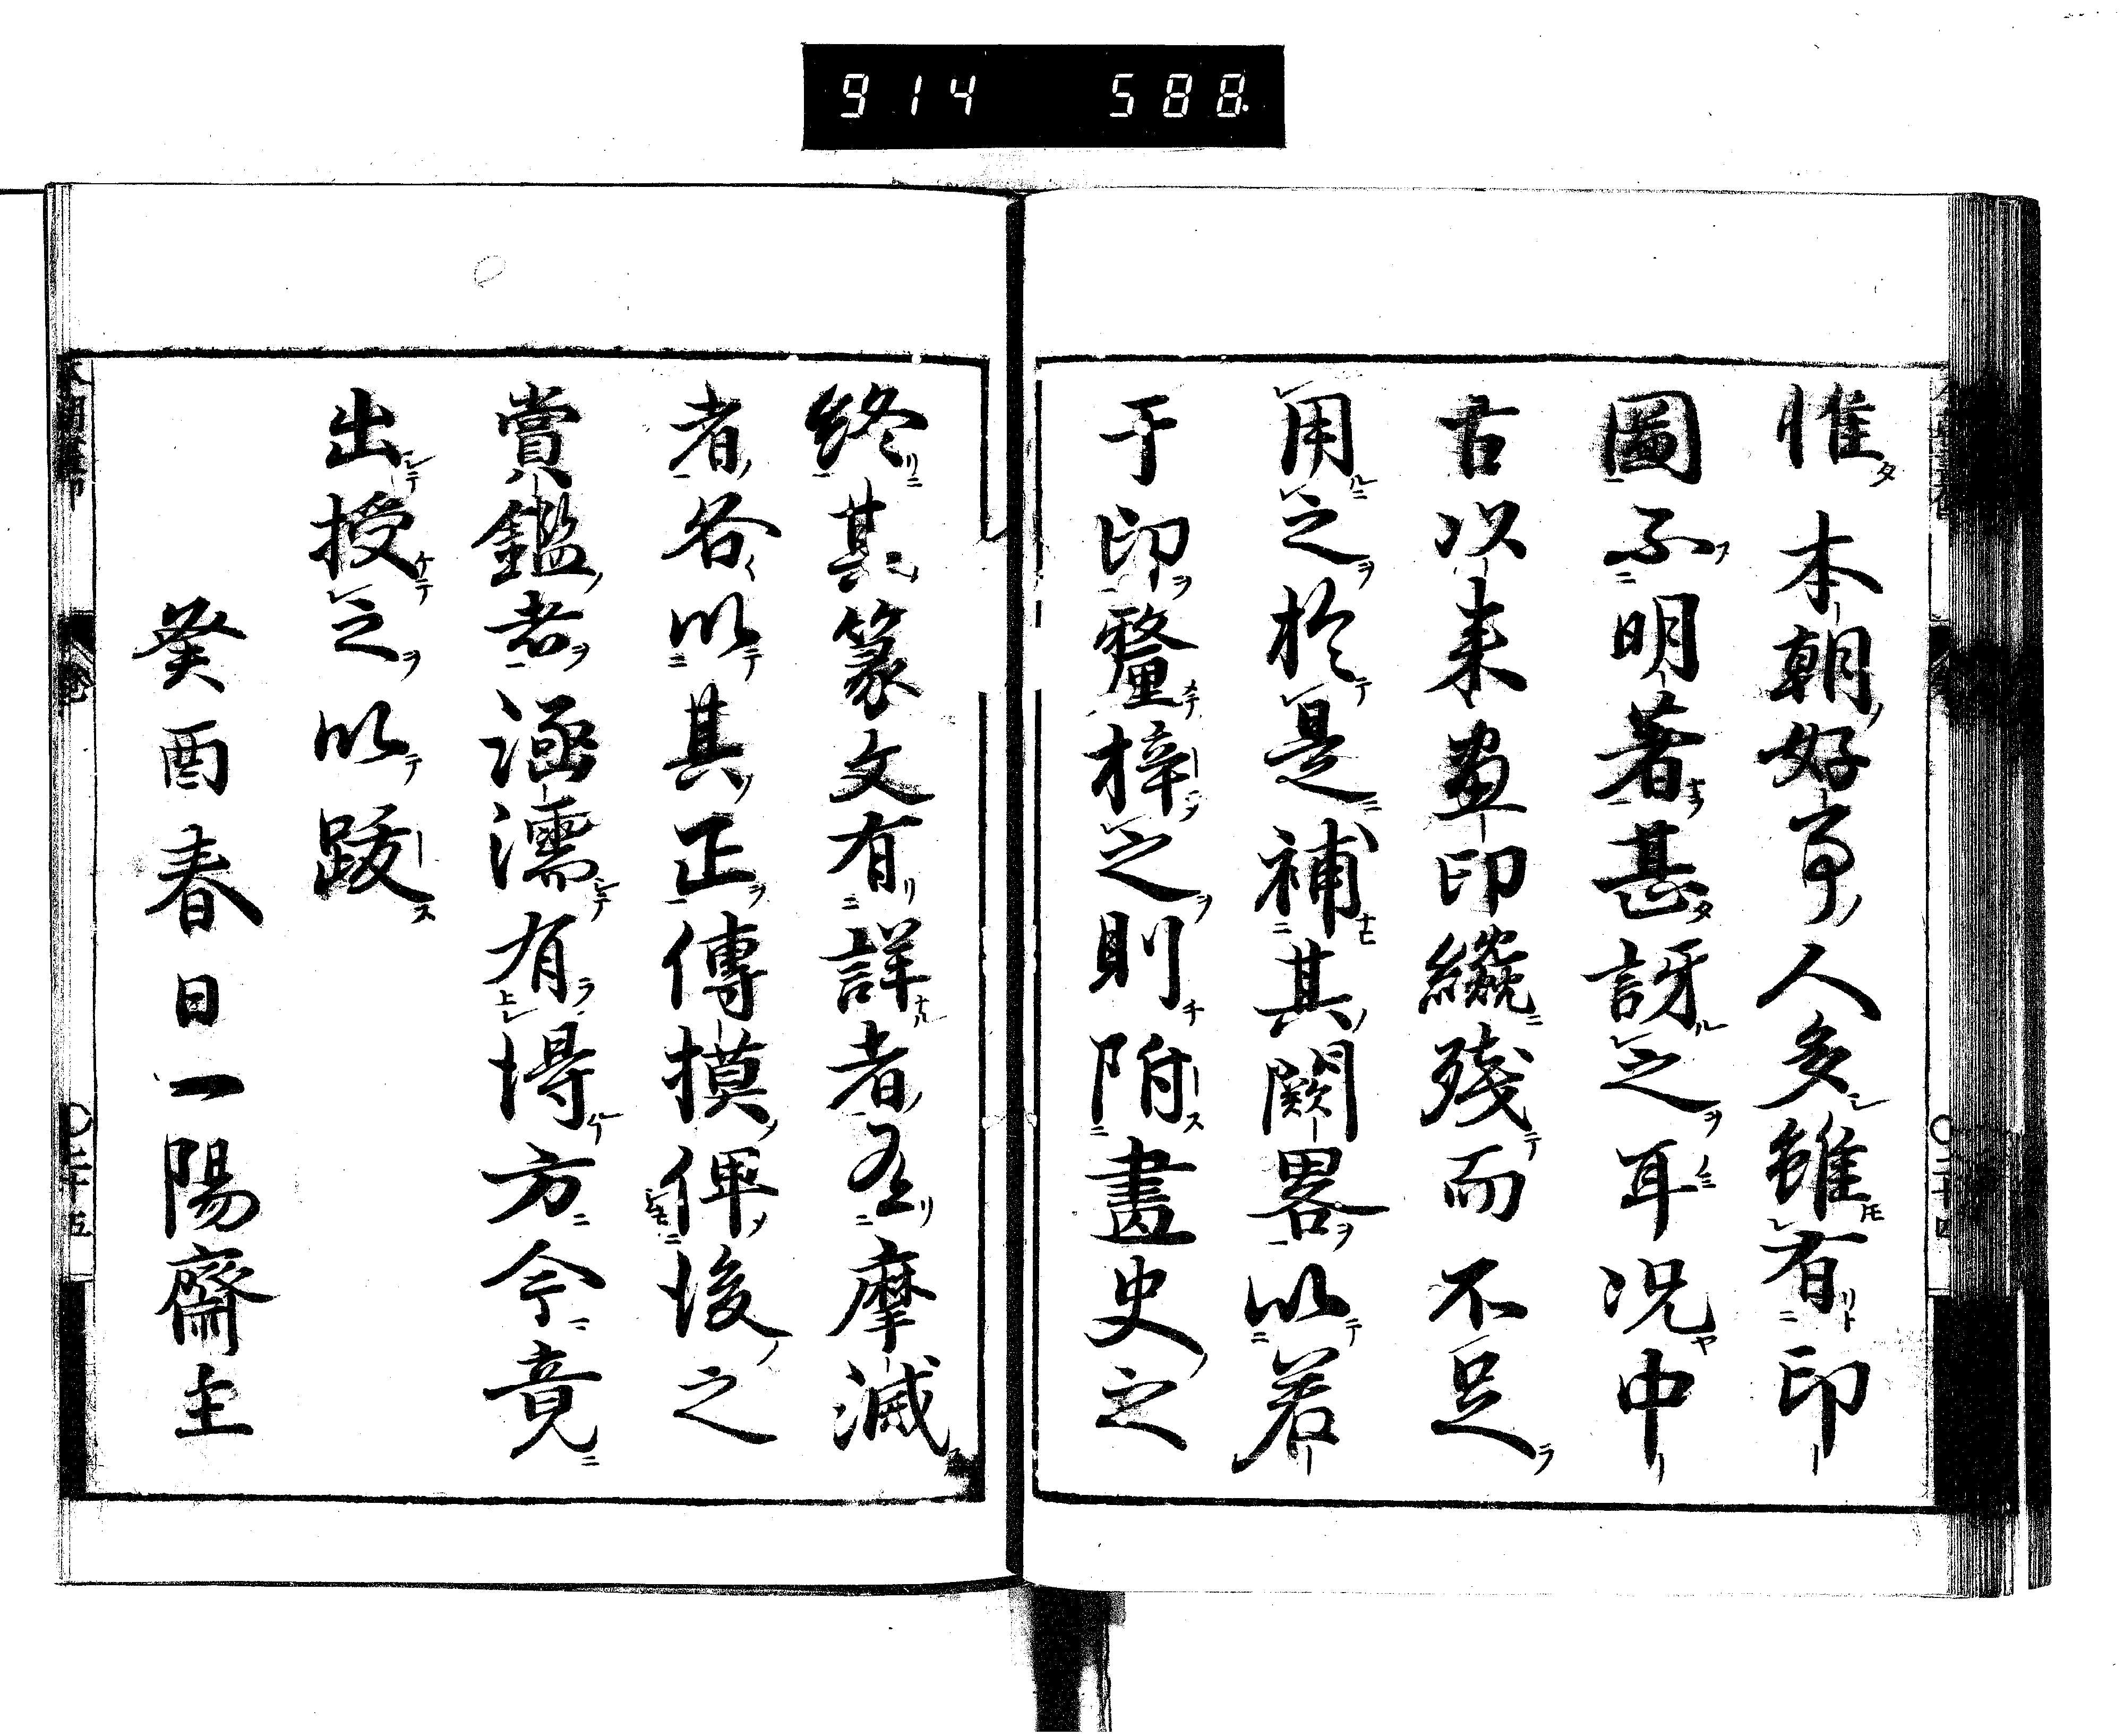 914 588
惟本朝好事人多雖有印
圖不明著甚訝之耳況中
古以來畫印纔殘而不足
用之於是補其闕畧以着
于印釐梓之則附畫史之
終其篆文有詳者有摩滅
者各以其正傳摸俾後之
賞鑑者涵濡有得方今竟
出授之以跋
癸酉春日一陽齋主
二十五